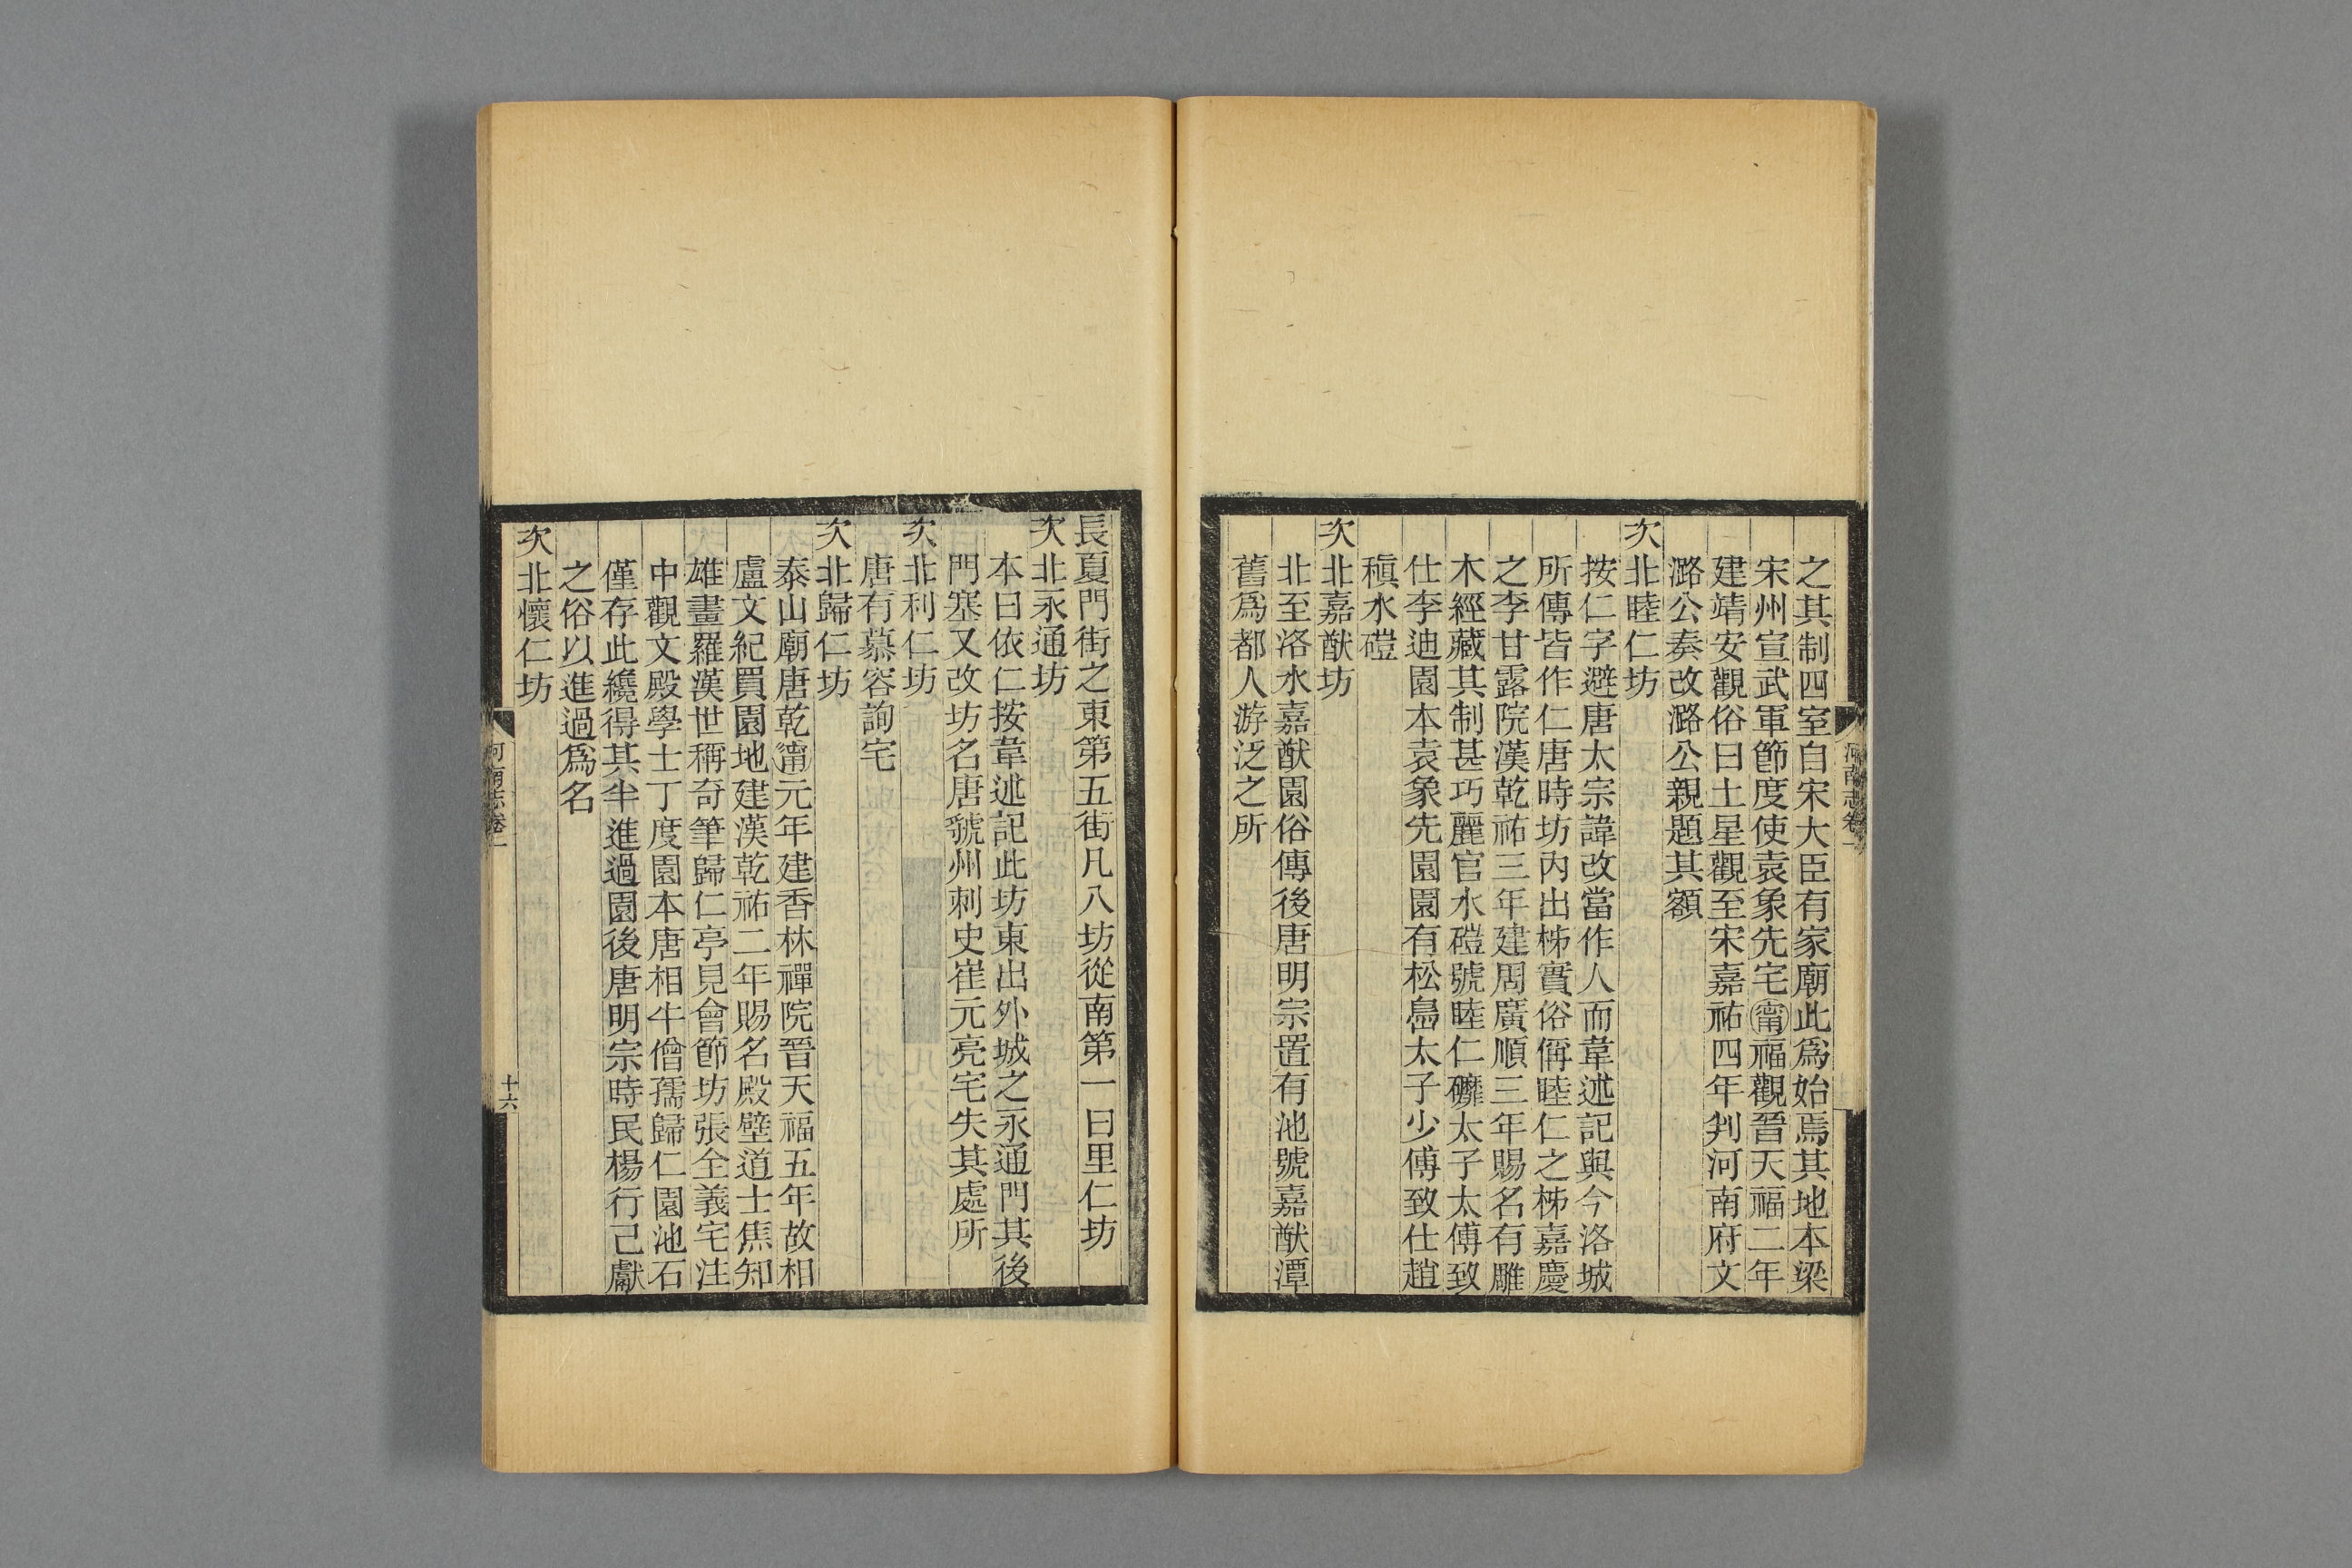 之其制四室自宋大臣有家廟此爲始焉其地本梁
宋州宣武軍節度使袁象先宅甯福觀晉天福二年
建靖安觀俗曰土星觀至宋嘉祐四年判河南府文
潞公奏改潞公親題其額
次北睦仁坊
按仁字避唐太宗諱改當作人而韋述記與今洛城
所傳皆作仁唐時坊內出柹實俗偁睦仁之柹嘉慶
之李甘露院漢乾祐三年建周廣順三年賜名有雕
木經藏其制甚巧麗官水磑號睦仁磨太子太傅致
仕李迪園本袁象先園園有松島太子少傅致仕趙
稹水磑
次北嘉猷坊
北至洛水嘉猷園俗傳後唐明宗置有池號嘉猷潭
舊爲都人游泛之所
河南志卷一
長夏門街之東第五街凡八坊從南第一曰里仁坊
次北永通坊
本曰依仁按韋述記此坊東出外城之永通門其後
門塞又改坊名唐虢州刺史崔元亮宅失其處所
次北利仁坊
唐有慕容詢宅
次北歸仁坊
泰山廟唐乾甯元年建香林禪院晉天福五年故相
盧文紀買園地建漢乾祐二年賜名殿壁道士焦知
雄畫羅漢世稱奇筆歸仁亭見會節坊張全義宅注
中觀文殿學士丁度園本唐相牛僧孺歸仁園池石
僅存此纔得其半進過園後唐明宗時民楊行己獻
之俗以進過爲名
次北懷仁坊
河南志卷一
十六